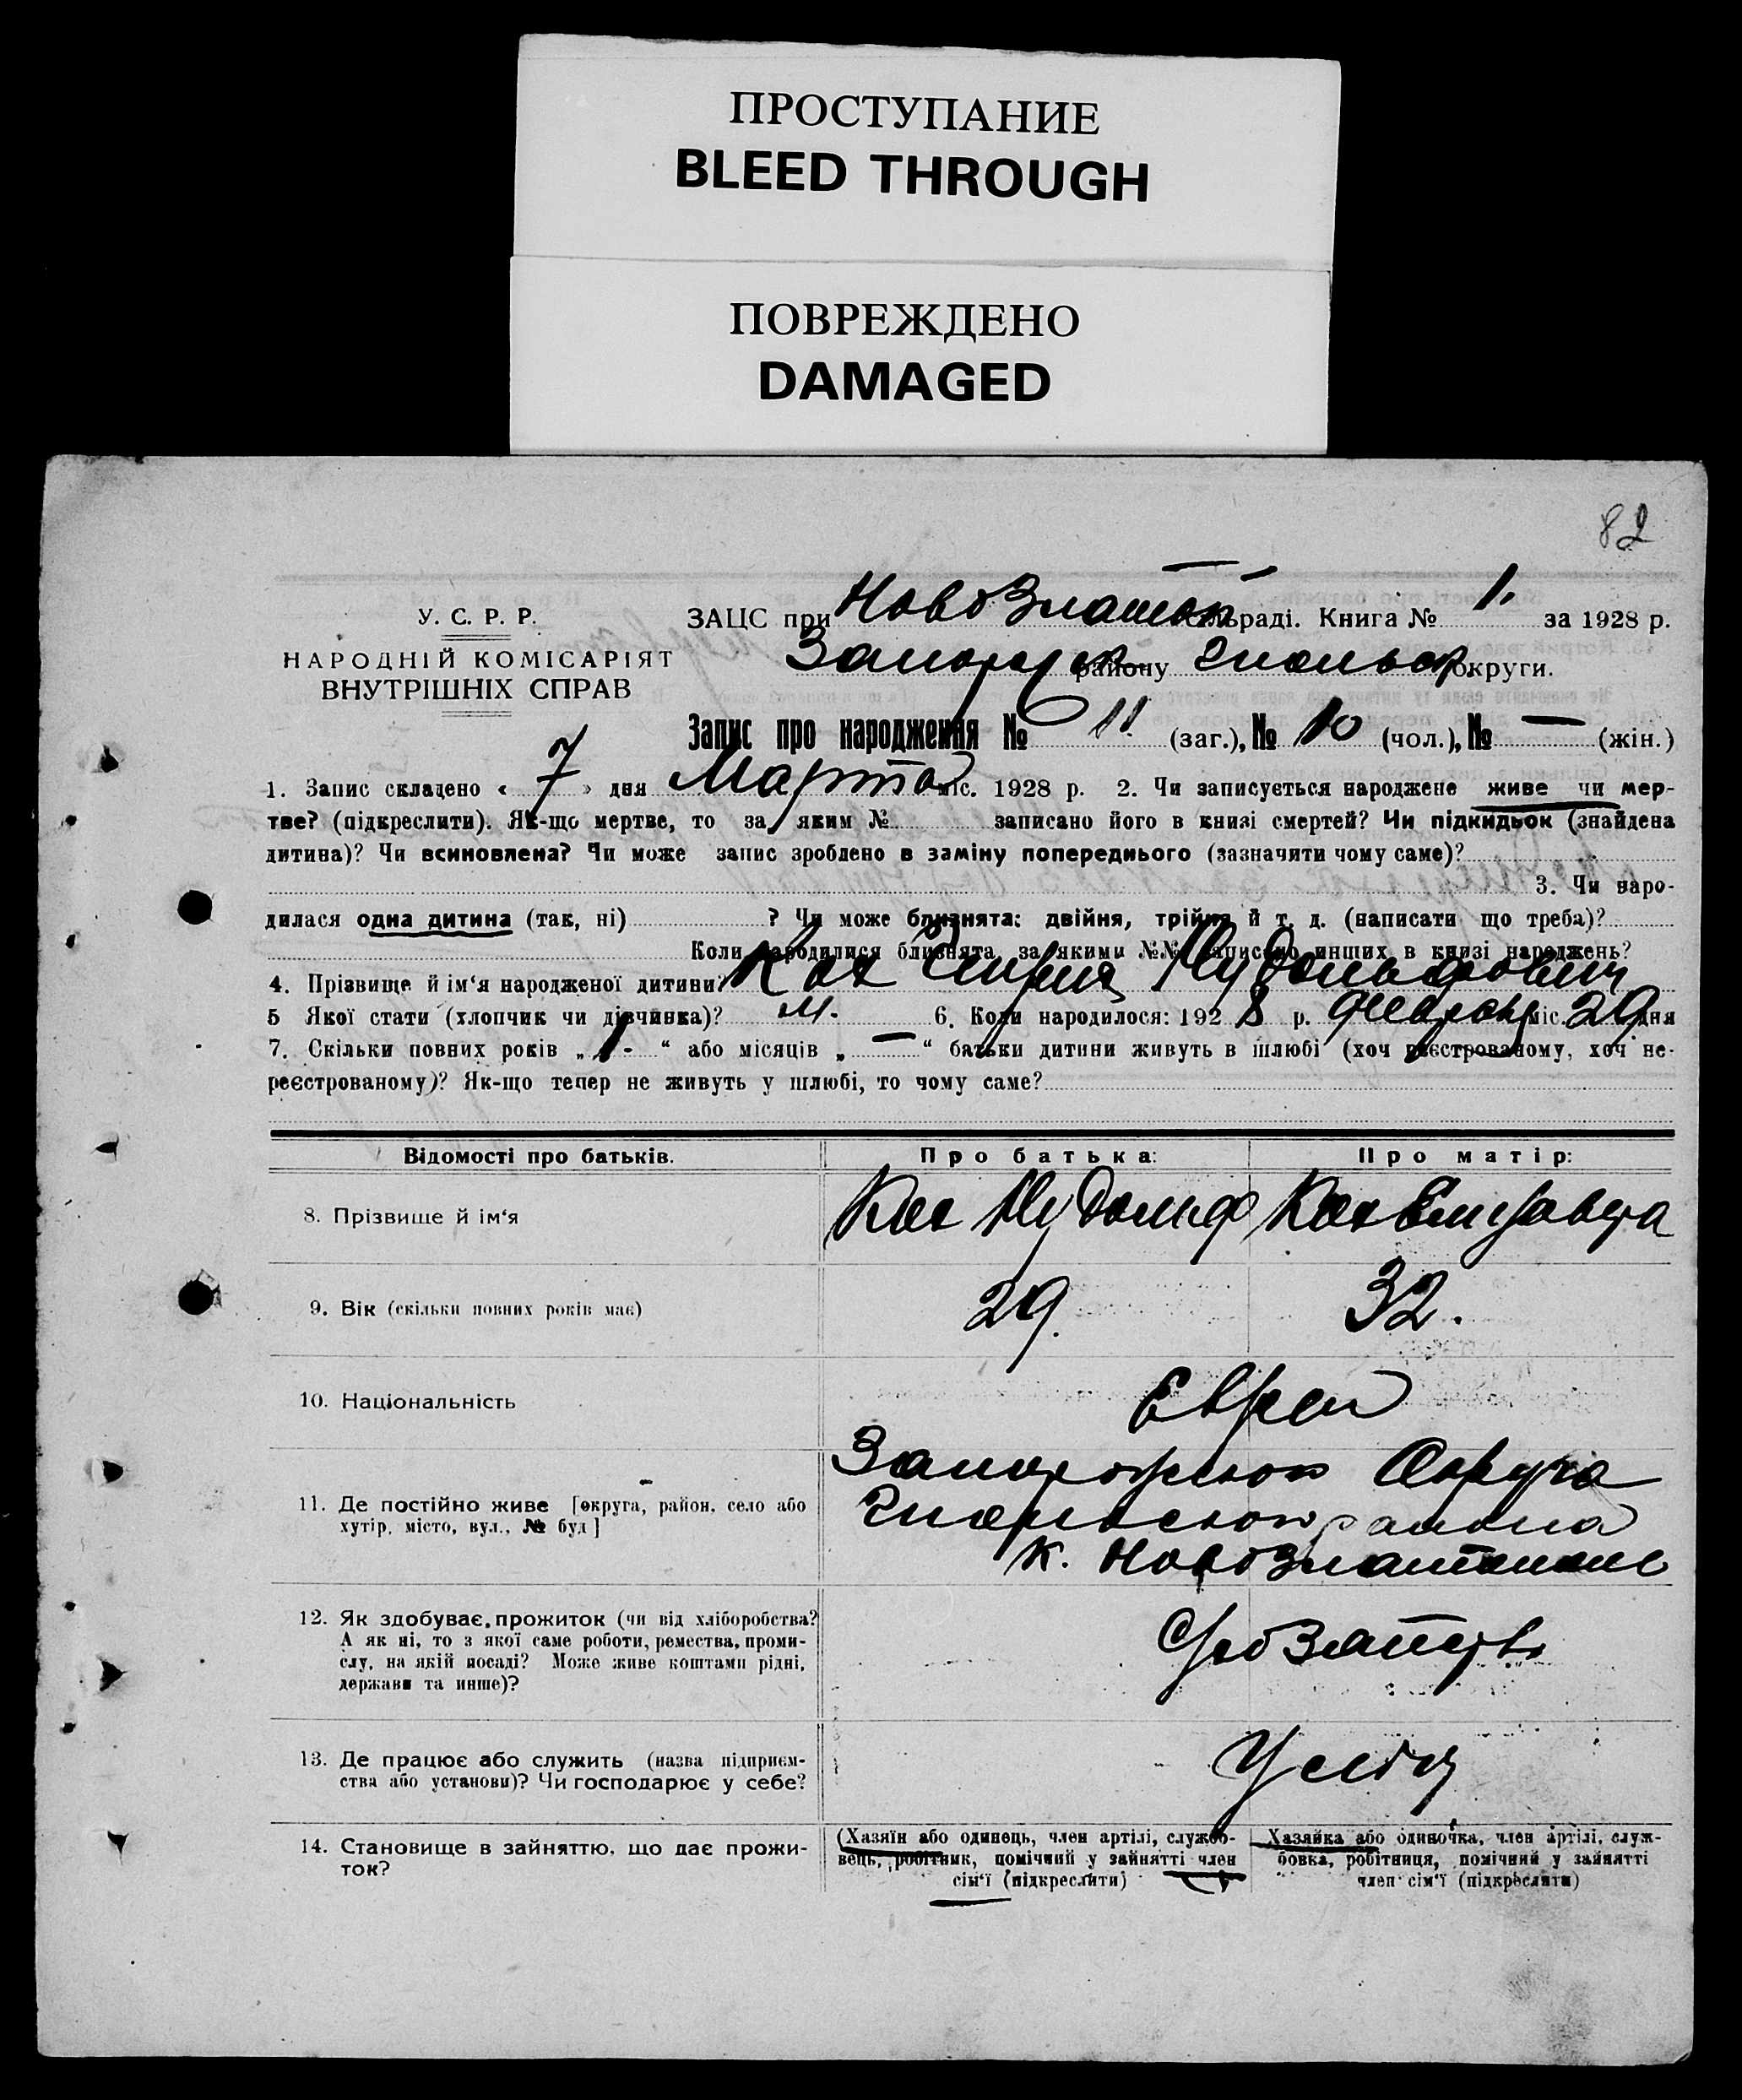 ПРОСТУПАНИЕ
BLEED THROUGH
ПОВРЕЖДЕНО
DAMAGED
82
У. С. Р. Р.
НАРОДНІЙ КОМІСАРІЯТ
ВНУТРІШНІХ СПРАВ
ЗАЦС при Новозлатоп сільраді. Книга № 1. за 1928 р.
району округи.
Запис про народження № 11 (заг.), № 10 (чол.), № — (жін.)
1. Запис складено « 7 » дня Марта міс. 1928 р. 2. Чи записується народжене живе чи мер-
тве? (підкреслити). Як-що мертве, то за яким № записано його в книзі смертей? Чи підкидьок (знайдена
дитина)? Чи всиновлена? Чи може запис зроблено в заміну попереднього (зазначити чому саме)?
3. Чи наро-
дилася одна дитина (так, ні) ? Чи може близнята: двійня, трійня й т. д. (написати що треба)?
Коли народилися близнята, за якими №№ записано инших в книзі народжень?
4. Прізвище й ім'я народженої дитини? Кох
5 Якої стати (хлопчик чи дівчинка)? м. 6. Коли народилося: 192 8 р. февраль міс. 29 дня
7. Скільки повних років „ 1 - “ або місяців „ — “ батьки дитини живуть в шлюбі (хоч реєстрованому, хоч не-
реєстрованому)? Як-що тепер не живуть у шлюбі, то чому саме?
Відомості про батьків.
Про батька:
Про матір:
8. Прізвище й ім'я
Кох
Кох Елизавета
9. Вік (скільки повних років має)
29.
32.
10. Національність
Евреи
11. Де постійно живе [округа, район, село або
хутір, місто, вул., № буд]
Запорожской Округа
района
к. Новозлатополе
12. Як здобуває прожиток (чи від хліборобства?
А як ні, то з якої саме роботи, ремества, проми-
слу, на якій посаді? Може живе коштами рідні,
держави та инше)?
13. Де працює або служить (назва підприєм-
ства або установи)? Чи господарює у себе?
У себя
14. Становище в зайняттю, що дає прожи-
ток?
(Хазяїн або одинець, член артілі, службо-
вець, робітник, помічний у зайнятті член
сім'ї (підкреслити)
Хазяйка або одиночка, член артілі, служ-
бовка, робітниця, помічний у зайнятті
член сім'ї (підкреслити)